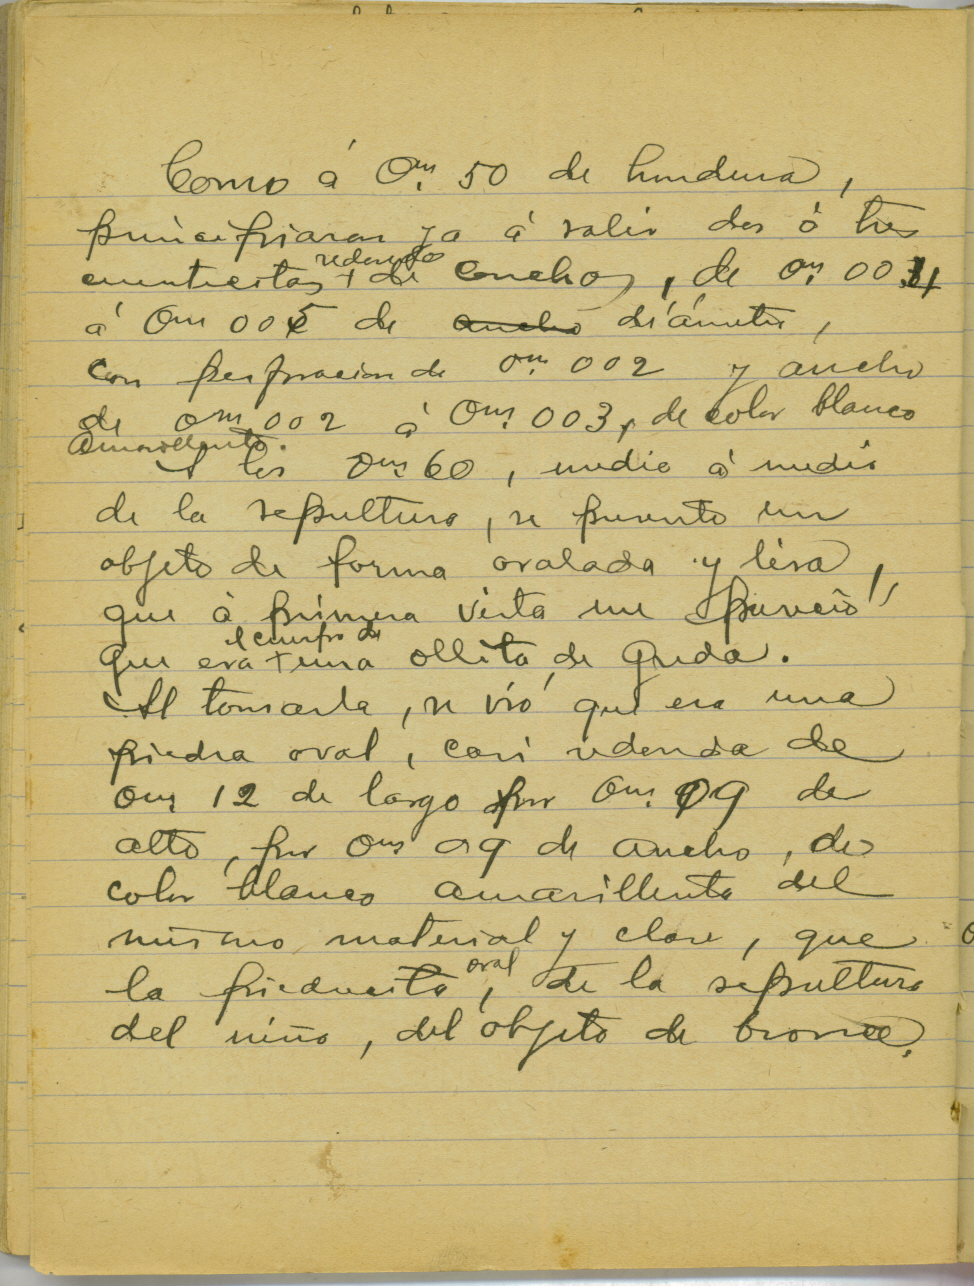 Como á 0m. 50 de hondura,
principiaron ya á salir dos ó tres
cuentecitas + redondas de conchas, de 0m. 004
á 0m 005 de ancho diámetro,
con perforacion de 0m. 002 y ancho
de 0m. 002 á 0m. 003, de color blanco
amarillento.
A los 0m. 60, medio á medio
de la sepultura, se presento un
objeto de forma ovalada y lisa,
que á primera vista me pareció
que era + el cuerpo de una ollita de greda.
Al tomarla, se vió que era una
piedra oval, casi redonda de
0m. 12 de largo por 0m. 09 de
alto, por 0m 09 de ancho, de
color blanco amarillento del
mismo material y clase, que
la piedrecita oval, de la sepultura
del niño, del objeto de bronce.